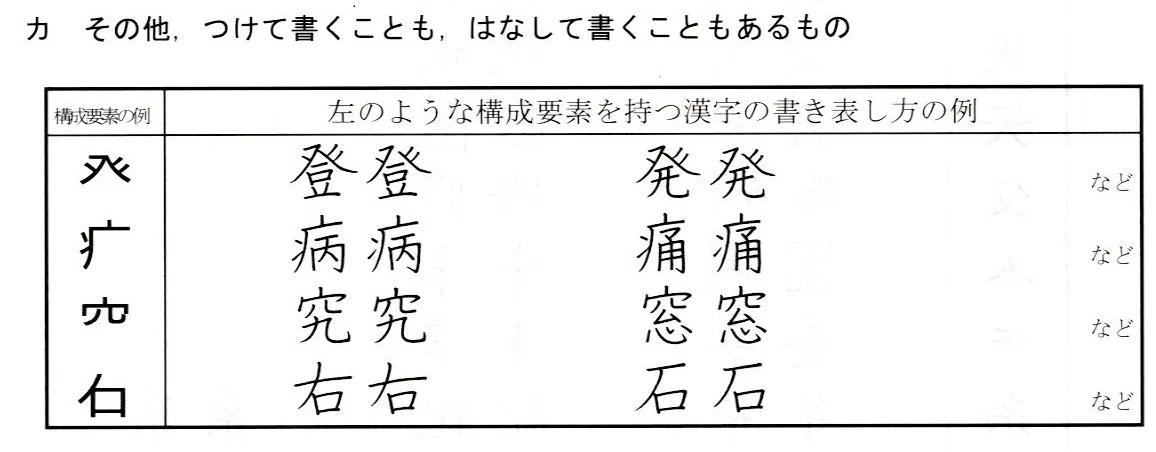 カ　その他，つけて書くことも，はなして書くこともあるもの
構成要素の例　左のような構成要素を持つ漢字の書き表し方の例
癶　登 登　発 発　など
疒　病 病　痛 痛　など
穴　究 究　窓 窓　など
右 右　石 石　など